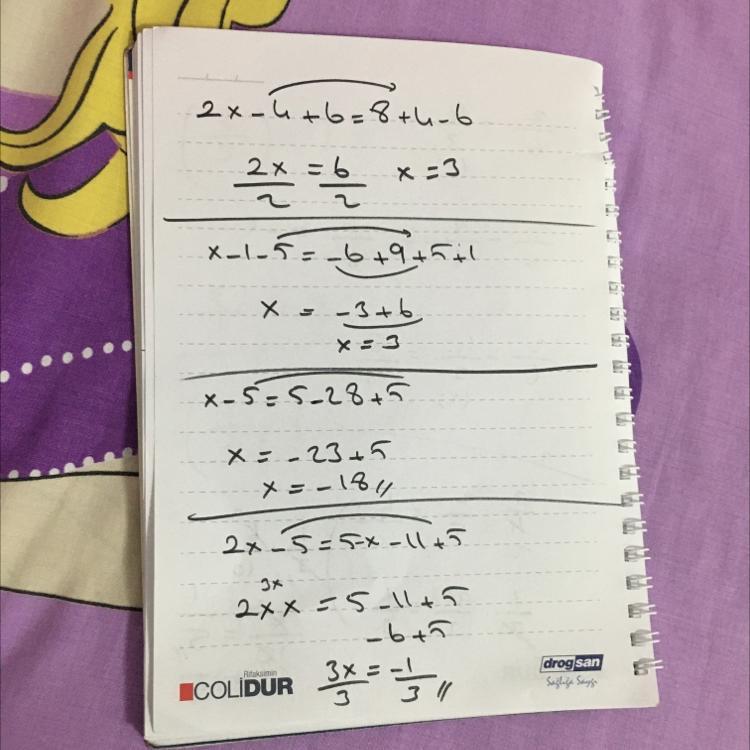 2x - 4 + 6 = 8 + 4 - 6
2x/2 = 6/2 x = 3
x - 1 - 5 = -6 + 9 + 5 + 1
x = -3 + 6
x = 3
x - 5 = 5 - 28 + 5
x = -23 + 5
x = -18 //
2x - 5 = 5 - x - 11 + 5
3x
2x x = 5 - 11 + 5
-6 + 5
3x/3 = -1/3 //
Rifaksimin
COLİDUR
drogsan
Sağlığa Saygı